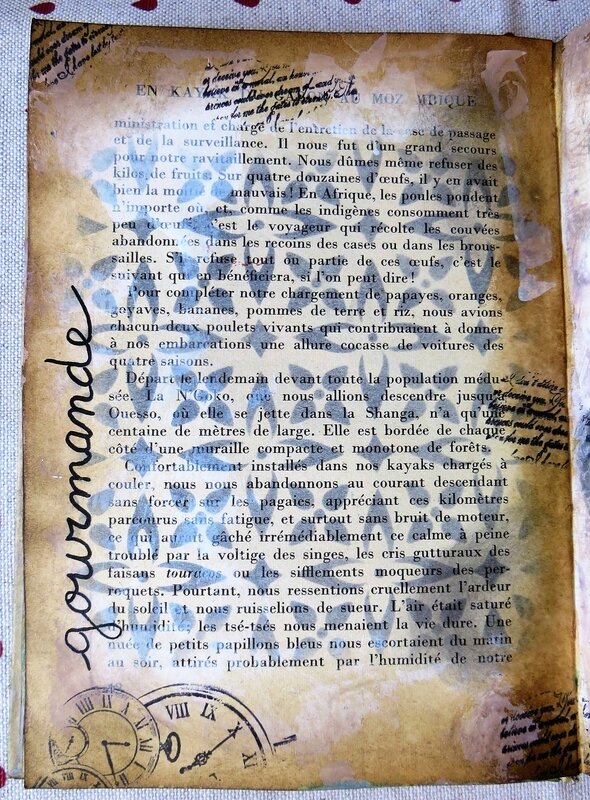 EN KAY AU MOZ MBIQUE
ministration et chargé de l'entretien de la case de passage
et de la surveillance. Il nous fut d'un grand secours
pour notre ravitaillement. Nous dûmes même refuser des
kilos de fruits. Sur quatre douzaines d'œufs, il y en avait
bien la moitié de mauvais ! En Afrique, les poules pondent
n'importe où, et, comme les indigènes consomment très
peu d'œufs, c'est le voyageur qui récolte les couvées
abandonnées dans les recoins des cases ou dans les brous-
sailles. S'il refuse tout ou partie de ces œufs, c'est le
suivant qui en bénéficiera, si l'on peut dire !
Pour compléter notre chargement de papayes, oranges,
goyaves, bananes, pommes de terre et riz, nous avions
chacun deux poulets vivants qui contribuaient à donner
à nos embarcations une allure cocasse de voitures des
quatre saisons.
Départ le lendemain devant toute la population médu-
sée. La N'Goko, que nous allions descendre jusqu'à
Ouesso, où elle se jette dans la Shanga, n'a qu'une
centaine de mètres de large. Elle est bordée de chaque
côté d'une muraille compacte et monotone de forêts.
Confortablement installés dans nos kayaks chargés à
couler, nous nous abandonnons au courant descendant
sans forcer sur les pagaies, appréciant ces kilomètres
parcourus sans fatigue, et surtout sans bruit de moteur,
ce qui aurait gâché irrémédiablement ce calme à peine
troublé par la voltige des singes, les cris gutturaux des
faisans touracos ou les sifflements moqueurs des per-
roquets. Pourtant, nous ressentions cruellement l'ardeur
du soleil et nous ruisselions de sueur. L'air était saturé
d'humidité; les tsé-tsés nous menaient la vie dure. Une
nuée de petits papillons bleus nous escortaient du matin
au soir, attirés probablement par l'humidité de notre
gourmande
VIII IX X XI